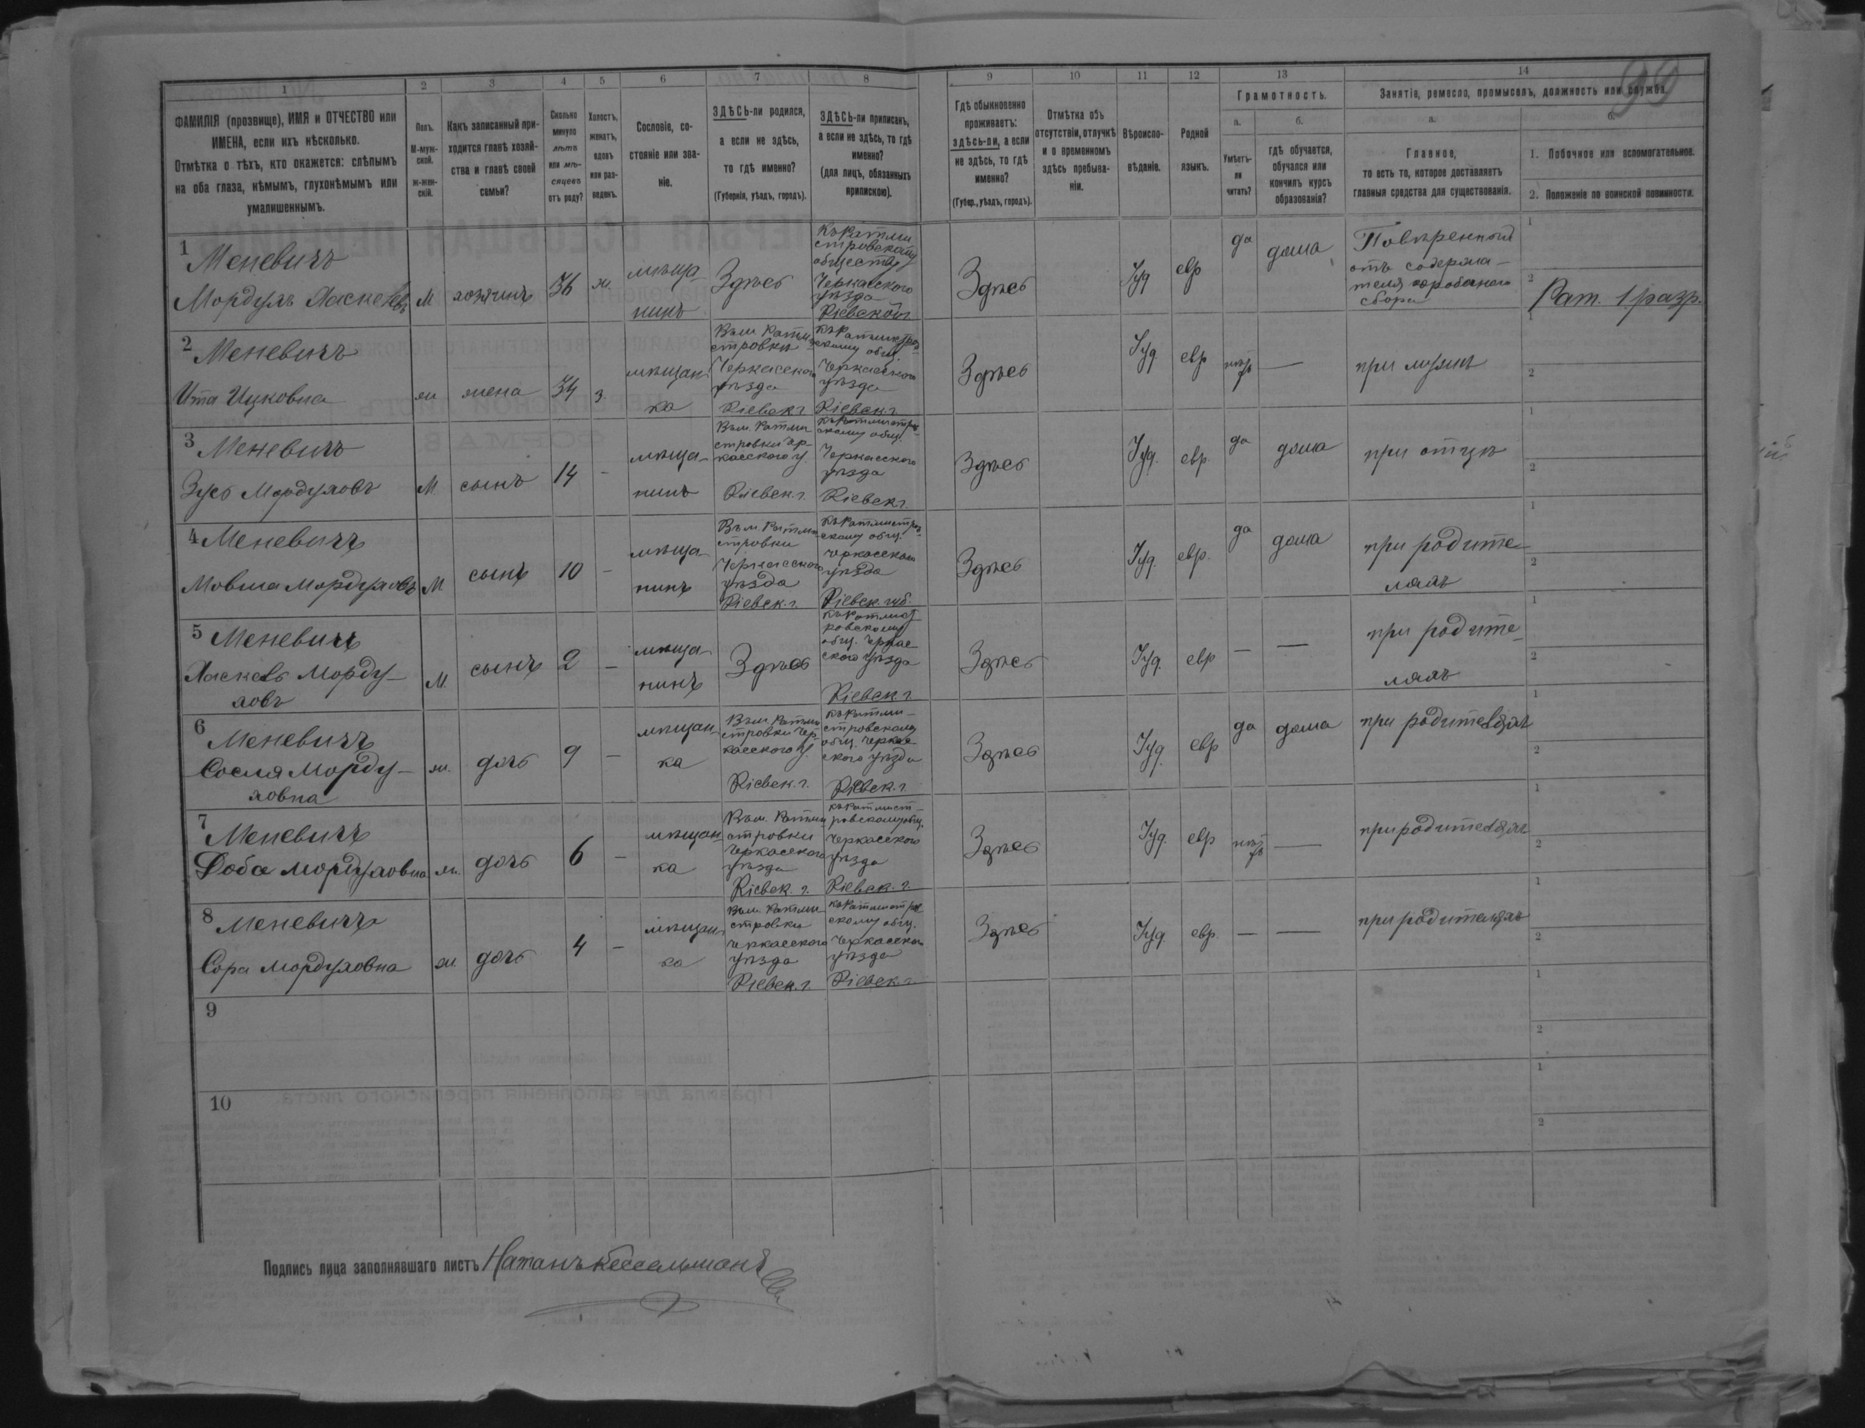 99
1 2 3 4 5 6 7 8 9 10 11 12 13 14
ФАМИЛІЯ (прозвище), ИМЯ и ОТЧЕСТВО или
ИМЕНА, если ихъ нѣсколько.
Отмѣтка о тѣхъ, кто окажется: слѣпымъ
на оба глаза, нѣмымъ, глухонѣмымъ или
умалишеннымъ.
Полъ.
М-муж-
ской.
ж-жен-
скій.
Какъ записанный при-
ходится главѣ хозяй-
ства и главѣ своей
семьи?
Сколько
минуло
лѣтъ
или мѣ-
сяцевъ
отъ роду?
Холостъ,
женатъ,
вдовъ
или раз-
веденъ.
Сословіе, со-
стояніе или зва-
ніе.
ЗДѢСЬ-ли родился,
а если не здѣсь,
то гдѣ именно?
(Губернія, уѣздъ, городъ).
ЗДѢСЬ-ли приписанъ,
а если не здѣсь, то гдѣ
именно?
(для лицъ, обязанныхъ
припискою).
Гдѣ обыкновенно
проживаетъ:
здѣсь-ли, а если
не здѣсь, то гдѣ
именно?
(Губер., уѣздъ, городъ).
Отмѣтка объ
отсутствіи, отлучкѣ
и о временномъ
здѣсь пребыва-
ніи.
Вѣроиспо-
вѣданіе.
Родной
языкъ.
Грамотность.
а.
Умѣетъ-
ли
читать?
б.
гдѣ обучается,
обучался или
кончилъ курсъ
образованія?
Занятіе, ремесло, промыселъ, должность или служба.
а.
Главное,
то есть то, которое доставляетъ
главныя средства для существованія.
б.
1. Побочное или вспомогательное.
2. Положеніе по воинской повинности.
1
Меневичъ
Мордухъ Хаскелевъ
М
хозяинъ
36
ж.
мѣща-
нинъ
Здѣсь
къ Ротми
стровскому
обществу
Черкасского
уѣзда
Кіевской
Здѣсь
Іуд
евр
да
дома
Повѣренный
отъ содержа-
теля коробочного
сбора
1
2 Рат. 1 разр.
2
Меневичъ
Ита Ицковна
ж
жена
34
з.
мѣщан-
ка
Въ м. Ротми
стровки
Черкасского
уѣзда
Кіевск г
Черкасского
уѣзда
Кіевск г
Здѣсь
Іуд
евр
нѣтъ
—
при мужи
1
2
3
Меневичъ
Зусь Мордуховъ
М
сынъ
14
-
мѣща-
нинъ
Въ м. Ротми
стровки Чер-
касского у.
Кіевск. г.
Черкасского
уѣзда
Кіевск г
Здѣсь
Іуд.
евр
да
дома
при отцѣ
1
2
4
Меневичъ
Мовша Мордуховъ
М
сынъ
10
-
мѣща
нинъ
Въ м. Ротми
стровки
Черкасского
уѣзда
Кіевск. г.
Черкасского
уѣзда
Кіевск. губ.
Здѣсь
Іуд.
евр.
да
дома
при родите-
ляхъ
1
2
5
Меневичъ
Хаскель Морду-
ховъ
М.
сынъ
2
-
мѣща
нинъ
Здѣсь
общ. Черкас
ского уѣзда
Кіевск г
Здѣсь
Іуд.
евр
—
—
при родите-
ляхъ
1
2
6
Меневичъ
Сосля Морду-
ховна
ж.
дочь
9
-
мѣщан
ка
Въ м. Ротми
стровки Чер-
касского у.
Кіевск. г.
къ Ротми-
стровскому
общ. Черкас
ского уѣзда
Кіевск. г
Здѣсь
Іуд.
евр
да
дома
при родителяхъ
1
2
7
Меневичъ
Доба Мордуховна
ж.
дочь
6
-
мѣщан
ка
Въ м. Ротми
стровки
Черкасского
уѣзда
Кіевск. г.
къ Ротмист-
ровскому общ.
Черкасского
уѣзда
Кіевск. г.
Здѣсь
Іуд.
евр
нѣтъ
—
при родителяхъ
1
2
8
Меневичъ
Сора Мордуховна
ж.
дочь
4
-
мѣщан
ка
Въ м. Ротми
стровки
Черкасского
уѣзда
Кіевск. г.
Черкасского
уѣзда
Кіевск. г.
Здѣсь
Іуд.
евр.
—
—
при родителяхъ
1
2
9
1
2
10
1
2
Подпись лица заполнявшаго листъ Натанъ